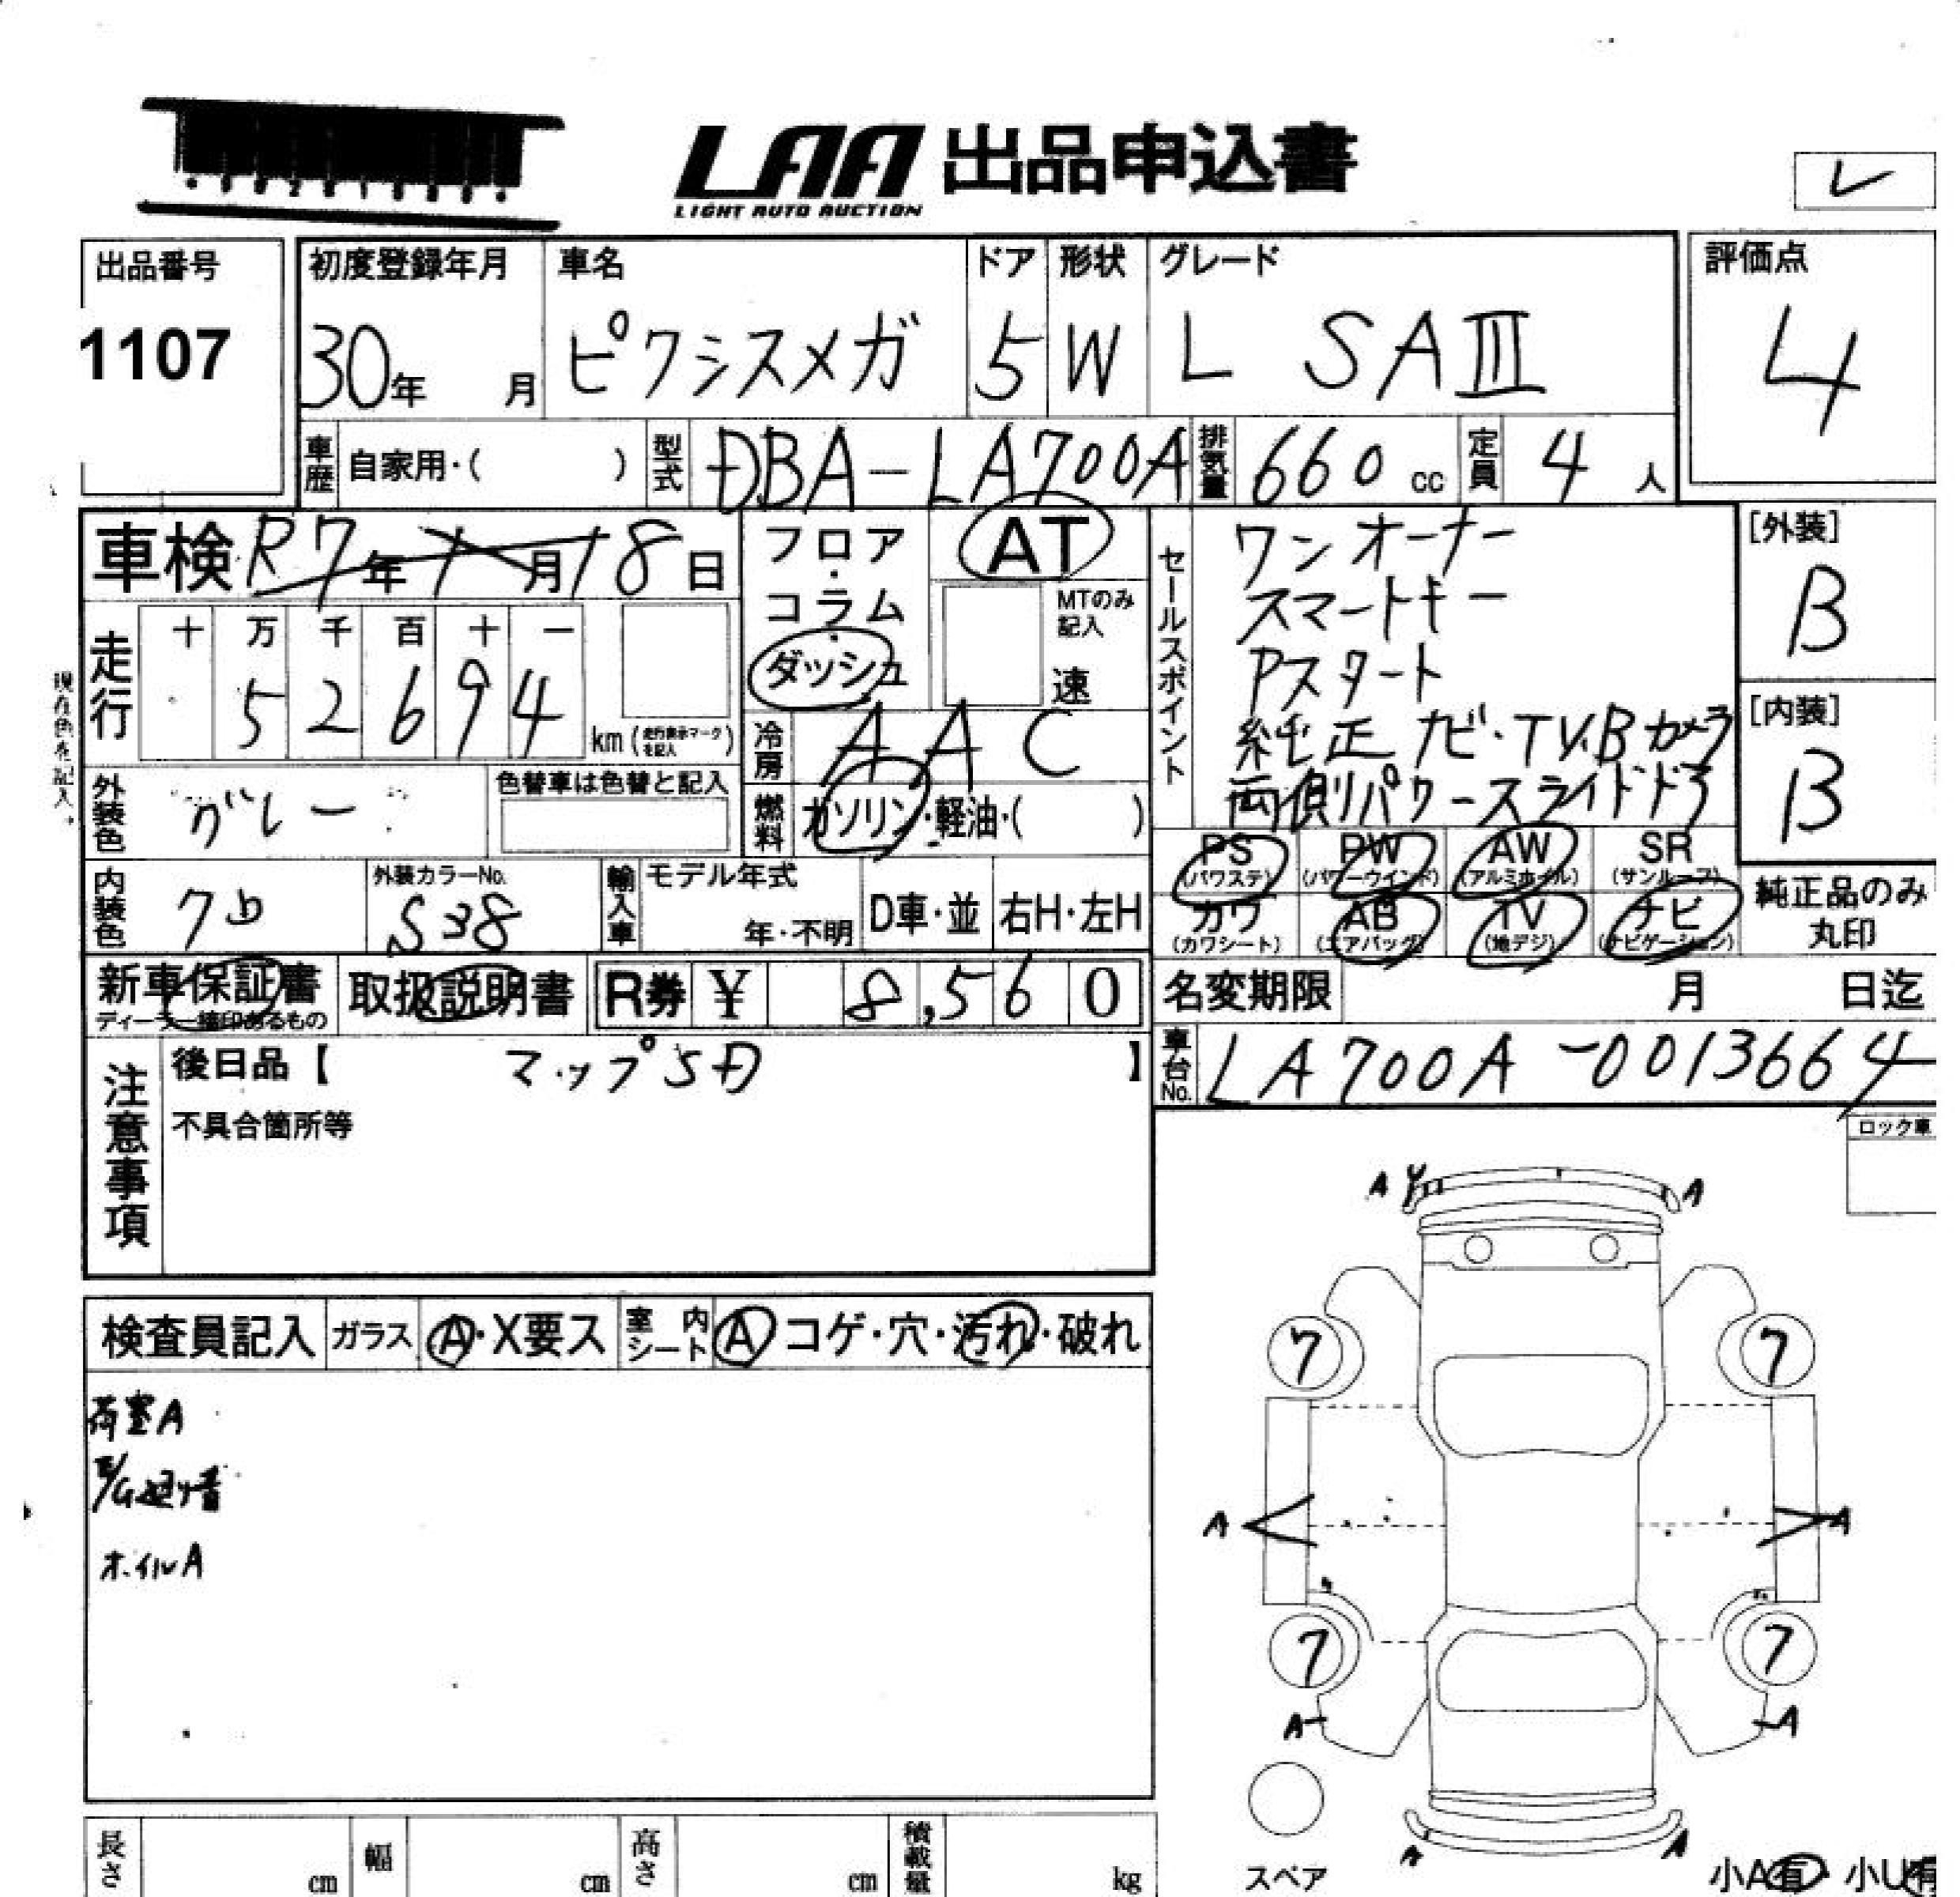 LAA 出品申込書
LIGHT AUTO AUCTION
レ
出品番号
1107
初度登録年月
30年 月
車名
ピクシスメガ
ドア
5
形状
W
グレード
L SAⅢ
評価点
4
車歴 自家用・( )
型式 DBA-LA700A
排気量 660 cc
定員 4 人
車検 R7年1月18日
フロア・コラム・ダッシュ
AT
MTのみ記入
速
走行
十 万 千 百 十 一
5 2 6 9 4
km (走行表示マークを記入)
現在色を記入。
冷房 AAC
燃料 ガソリン・軽油・( )
外装色 グレー
色替車は色替と記入
内装色
外装カラーNo.
S38
輸入車
モデル年式
年・不明
D車・並
右H・左H
セールスポイント
ワンオーナー
スマートキー
Pスタート
純正ナビ・TV.Bカメラ
両側パワースライドドア
[外装]
B
[内装]
B
PS (パワステ)
PW (パワーウインド)
AW (アルミホイル)
SR (サンルーフ)
カワ (カワシート)
AB (エアバッグ)
TV (地デジ)
ナビ (ナビゲーション)
純正品のみ
丸印
新車保証書
ディーラー捺印あるもの
取扱説明書
R券 ¥ 8,560
名変期限 月 日迄
車台No. LA700A-0013664
注意事項
後日品【 マップSD 】
不具合箇所等
ロック車
検査員記入
ガラス A・X要ス
室内シート A コゲ・穴・汚れ・破れ
荷室A
E/G廻り音
ホイルA
A Y A
7 7
A A
7 7
A A
A A
スペア
小A有・小U有
長さ cm
幅 cm
高さ cm
積載量 kg